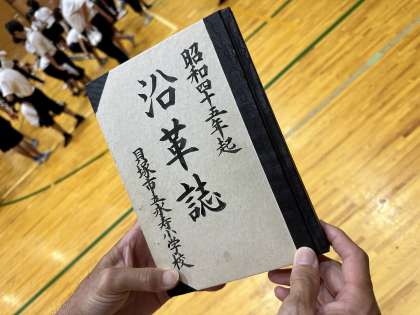 昭和四十五年起
沿革誌
貝塚市立永寿小学校